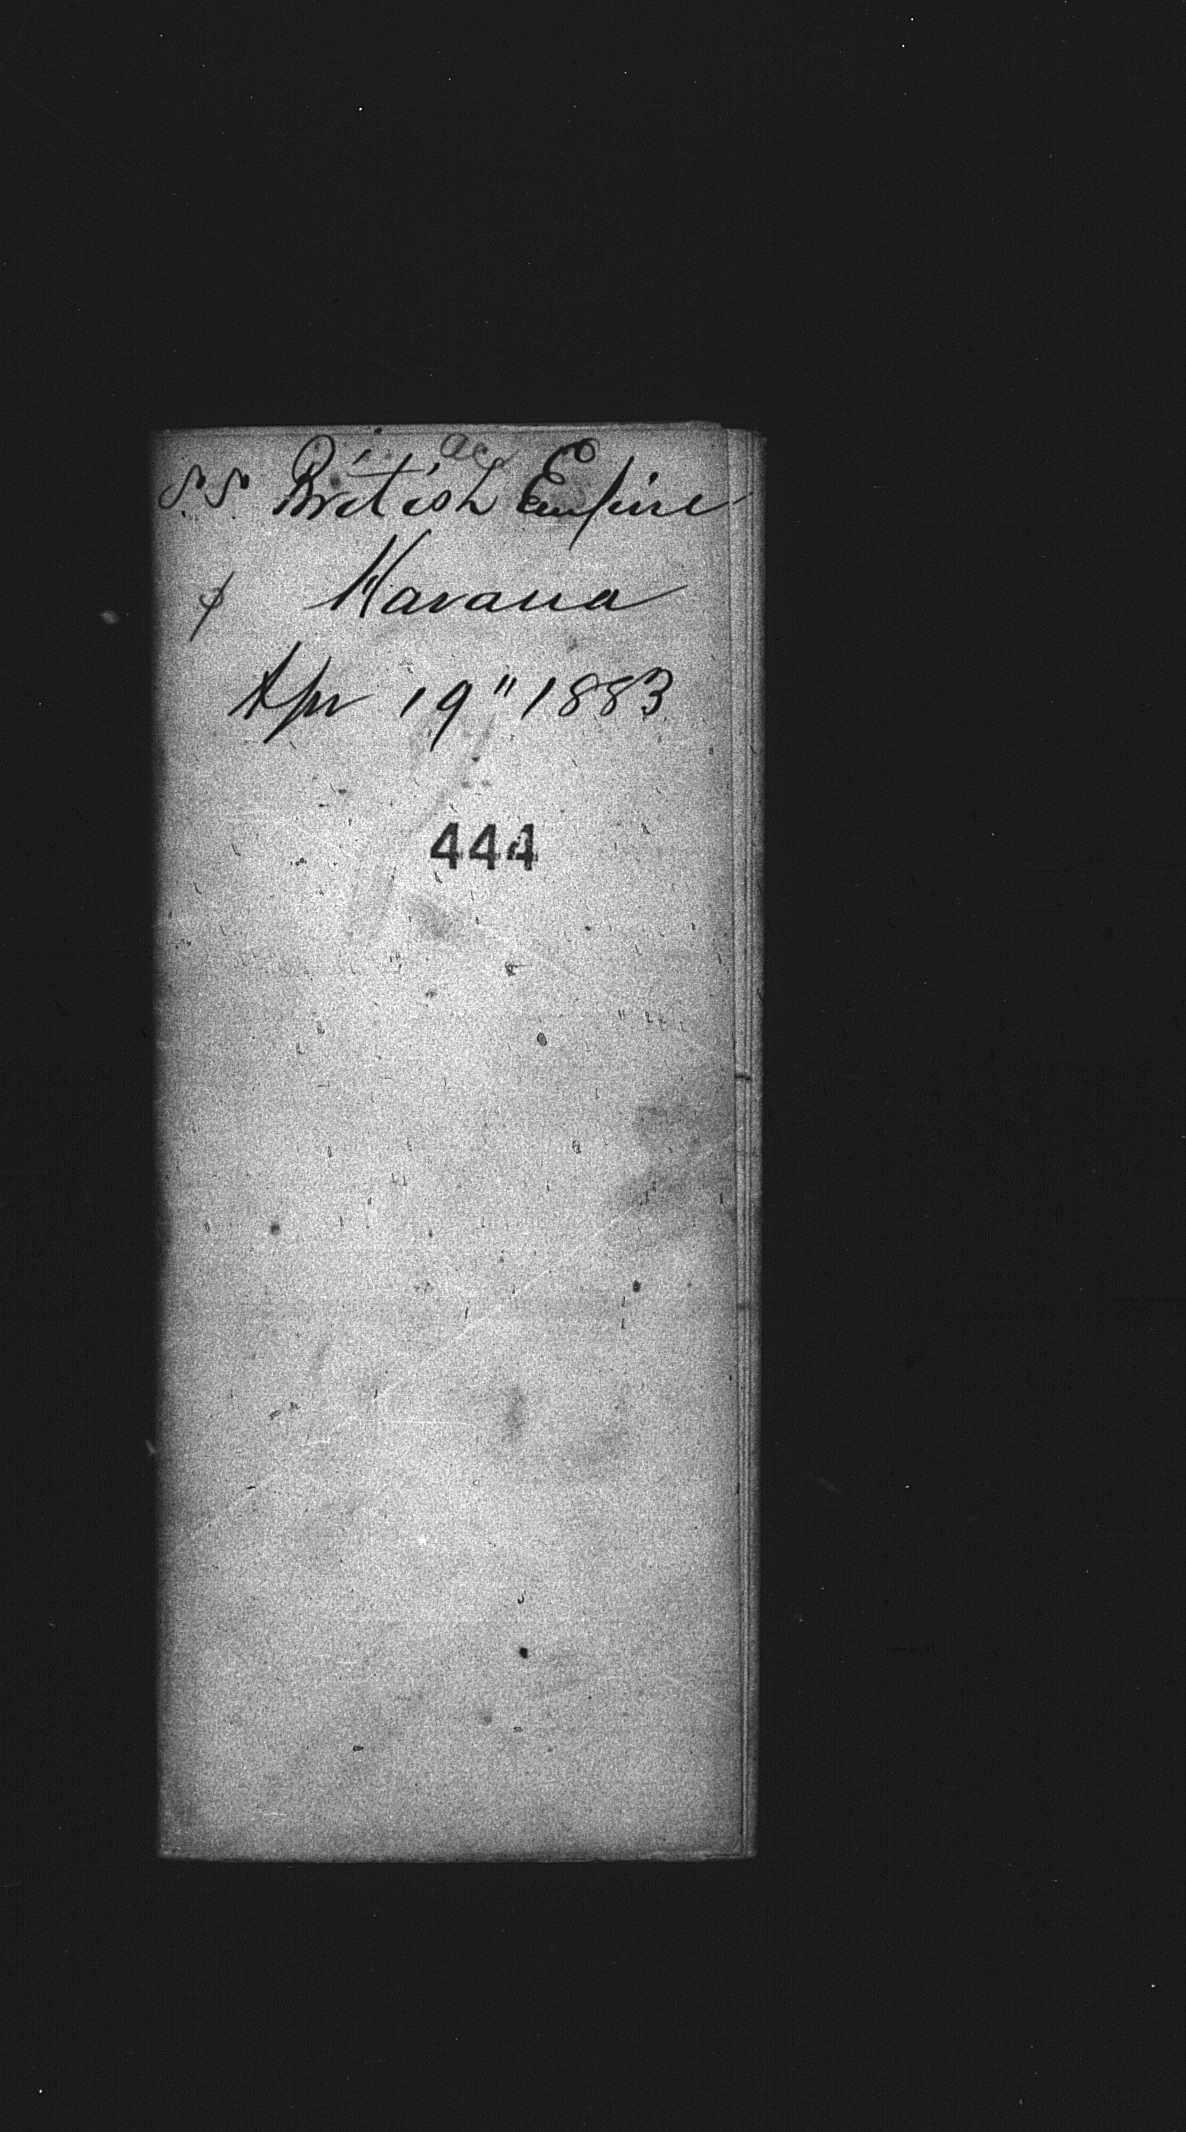 ac
S.S. British Empire
f Havana
Apr 19" 1883
444